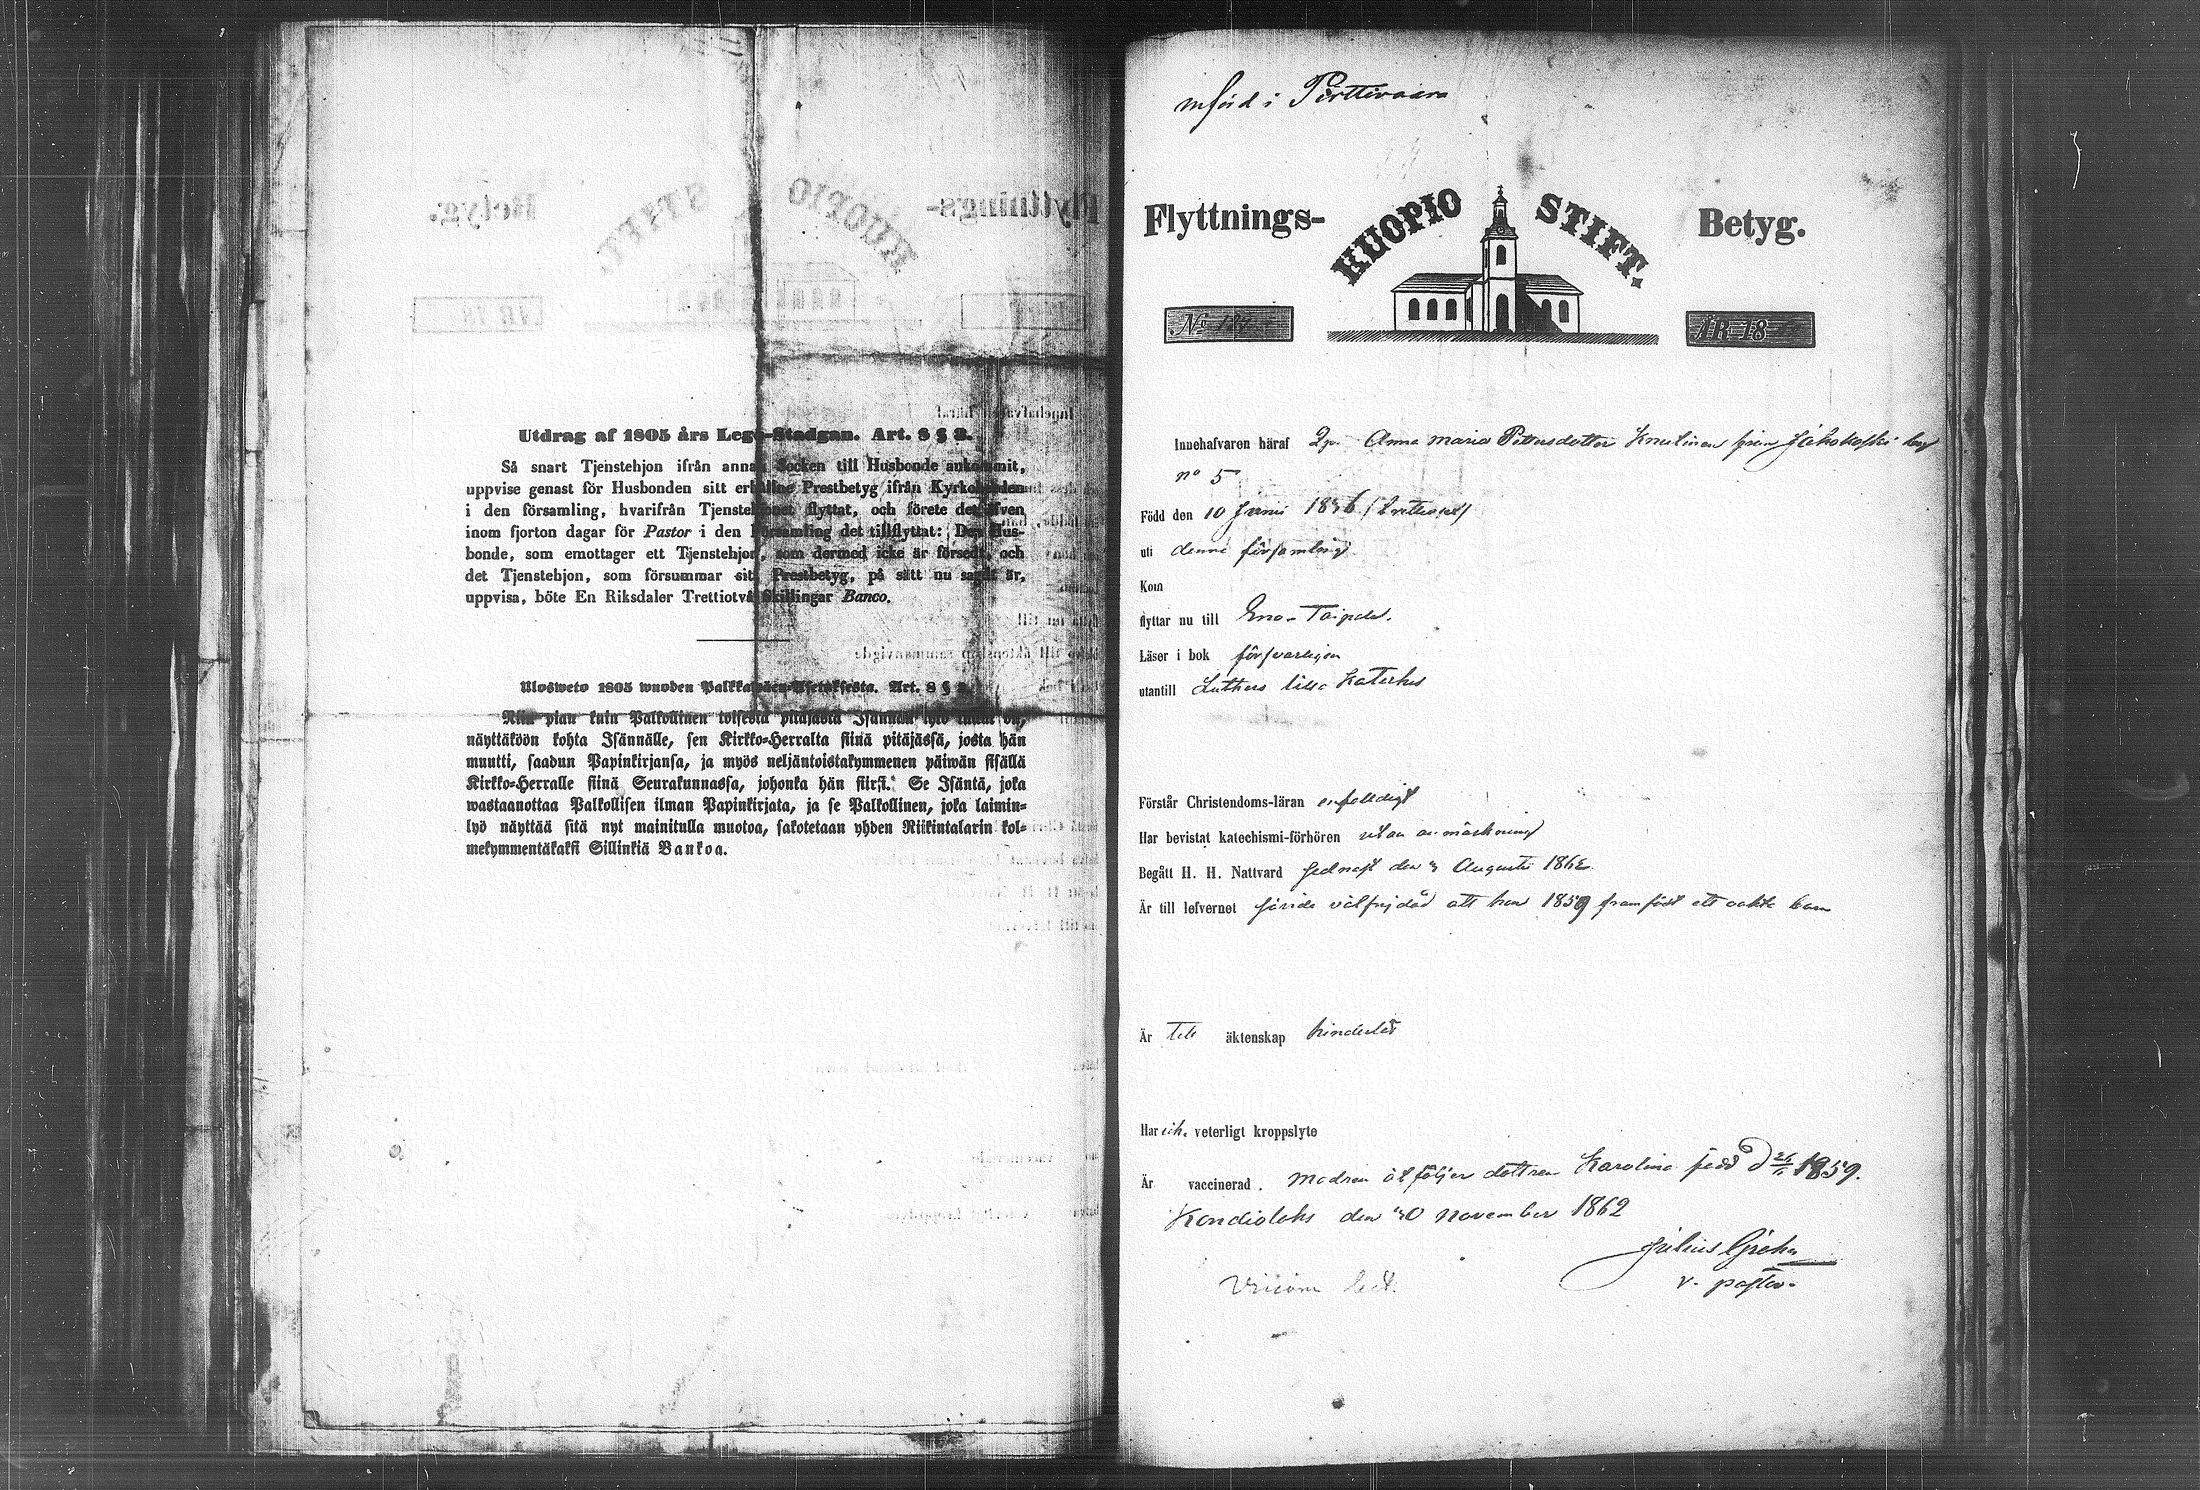 Utdrag af 1805 års Lego-Stadgan. Art. 8 § 2.
Så snart Tjenstehjon ifrån annan Socken till Husbonde ankommit,
uppvise genast för Husbonden sitt erhållne Prestbetyg ifrån Kyrkoherden
i den församling, hvarifrån Tjenstehjonet flyttat, och förete det äfven
inom fjorton dagar för Pastor i den Församling det tillflyttat: Den Hus-
bonde, som emottager ett Tjenstehjon, som dermed icke är försedt, och
det Tjenstehjon, som försummar sitt Prestbetyg, på sätt nu sagdt är,
uppvisa, böte En Riksdaler Trettiotvå Skillingar Banco.
Ulosweto 1805 wuoden Palkkawäen-Asetuksesta. Art. 8 §
Niin pian kuin Palkollinen toisesta pitäjästä Isännän työ tullut on,
näyttäköön kohta Isännälle, sen Kirkko-Herralta siinä pitäjässä, josta hän
muutti, saadun Papinkirjansa, ja myös neljäntoistakymmenen päiwän sisällä
Kirkko-Herralle siinä Seurakunnassa, johonka hän siirsi. Se Isäntä, joka
wastaanottaa Palkollisen ilman Papinkirjata, ja se Palkollinen, joka laimin-
lyö näyttää sitä nyt mainitulla muotoa, sakotetaan yhden Riikintalarin kol-
mekymmentäkaksi Sillinkiä Bankoa.
införd i Pörttivaara
Flyttnings- KUOPIO STIFT. Betyg.
No ÅR 18
Innehafvaren häraf Anna Maria Pettersdotter från
no 5
Född den 10 Junii
uti denna församling
Kom
flyttar nu till Eno-Taipale.
Läser i bok försvarligen
utantill Luthers lilla Kateches
Förstår Christendoms-läran enfaldigt
Har bevistat katechismi-förhören utan anmärkning
Begått H. H. Nattvard sednast den 3 Augusti 1862
Är till lefvernet välfrejdad att hon 1859 framfödt ett oäkta barn
Är till äktenskap hinderlös
Har ick. veterligt kroppslyte
Är vaccinerad. Modren åtföljer dottren Karolina född d 1859.
Kondiolaks den 30 November 1862
Julius
v. pastor.